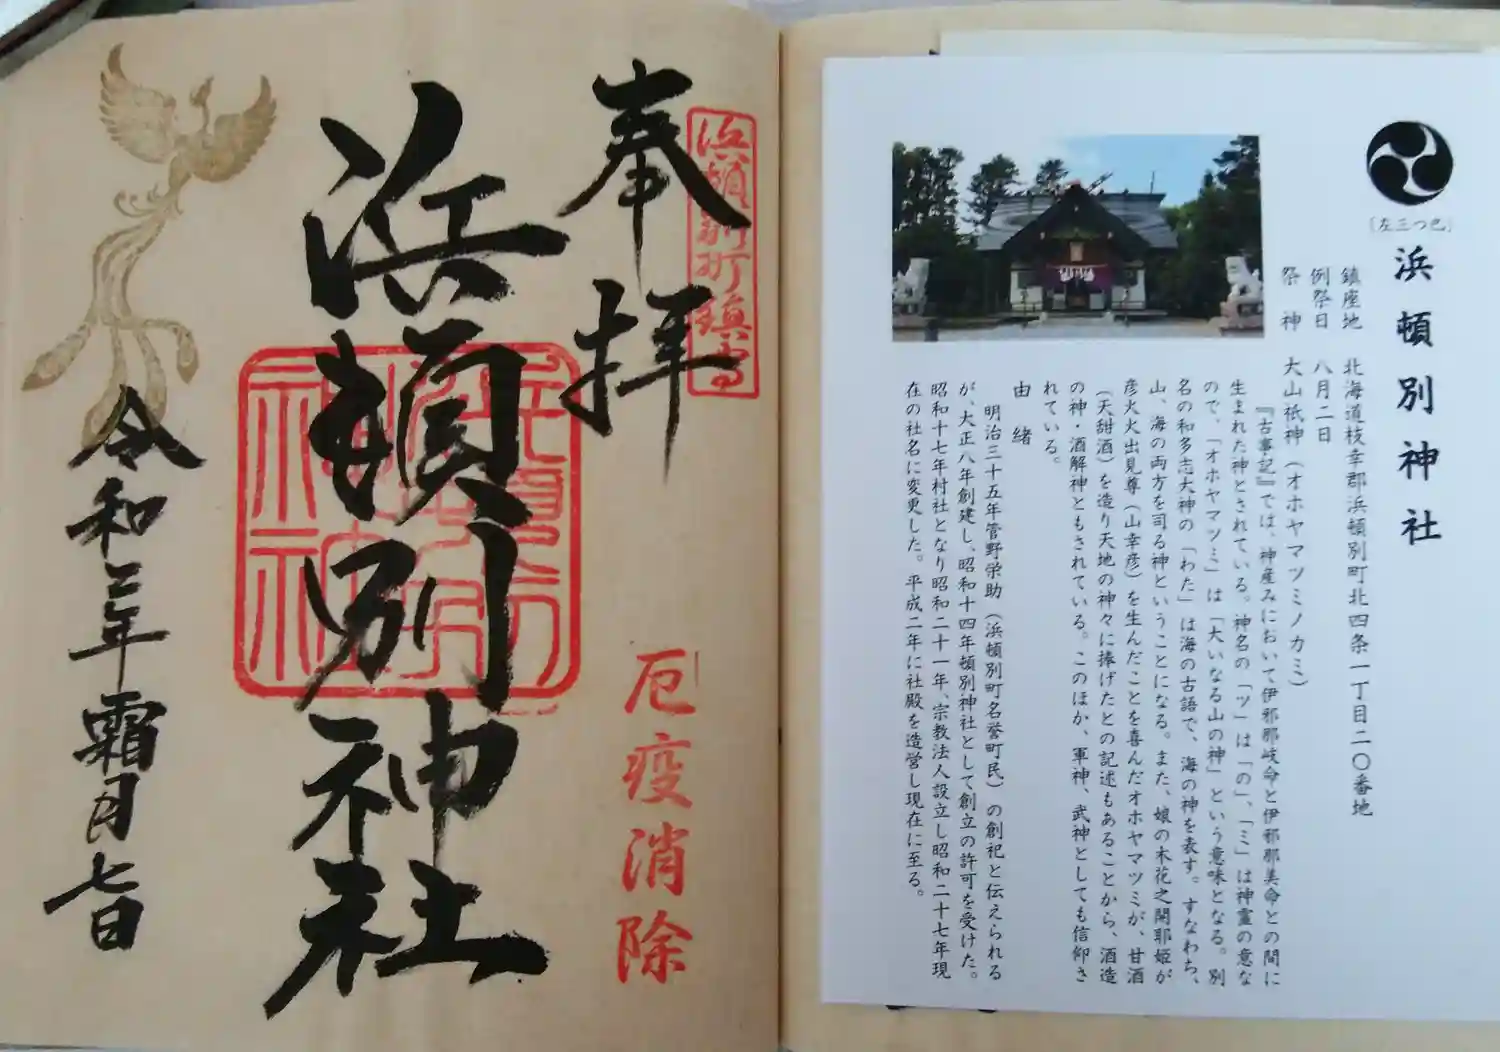 (左三つ巴)
浜頓別神社
鎮座地 北海道枝幸郡浜頓別町北四条一丁目二〇番地
例祭日 八月二日
祭神 大山祇神(オホヤマツミノカミ)
『古事記』では、神産みにおいて伊邪那岐命と伊邪那美命との間に
生まれた神とされている。神名の「ツ」は「の」、「ミ」は神霊の意な
ので、「オホヤマツミ」は「大いなる山の神」という意味となる。別
名の和多志大神の「わた」は海の古語で、海の神を表す。すなわち、
山、海の両方を司る神ということになる。また、娘の木花之開耶姫が
彦火火出見尊(山幸彦)を生んだことを喜んだオホヤマツミが、甘酒
(天甜酒)を造り天地の神々に捧げたとの記述もあることから、酒造
の神・酒解神ともされている。このほか、軍神、武神としても信仰さ
れている。
由緒
明治三十五年菅野栄助(浜頓別町名誉町民)の創祀と伝えられる
が、大正八年創建し、昭和十四年頓別神社として創立の許可を受けた。
昭和十七年村社となり昭和二十一年、宗教法人設立し昭和二十七年現
在の社名に変更した。平成二年に社殿を造営し現在に至る。
浜頓別町鎮守
奉拝
厄疫消除
浜頓別神社
令和三年霜月七日